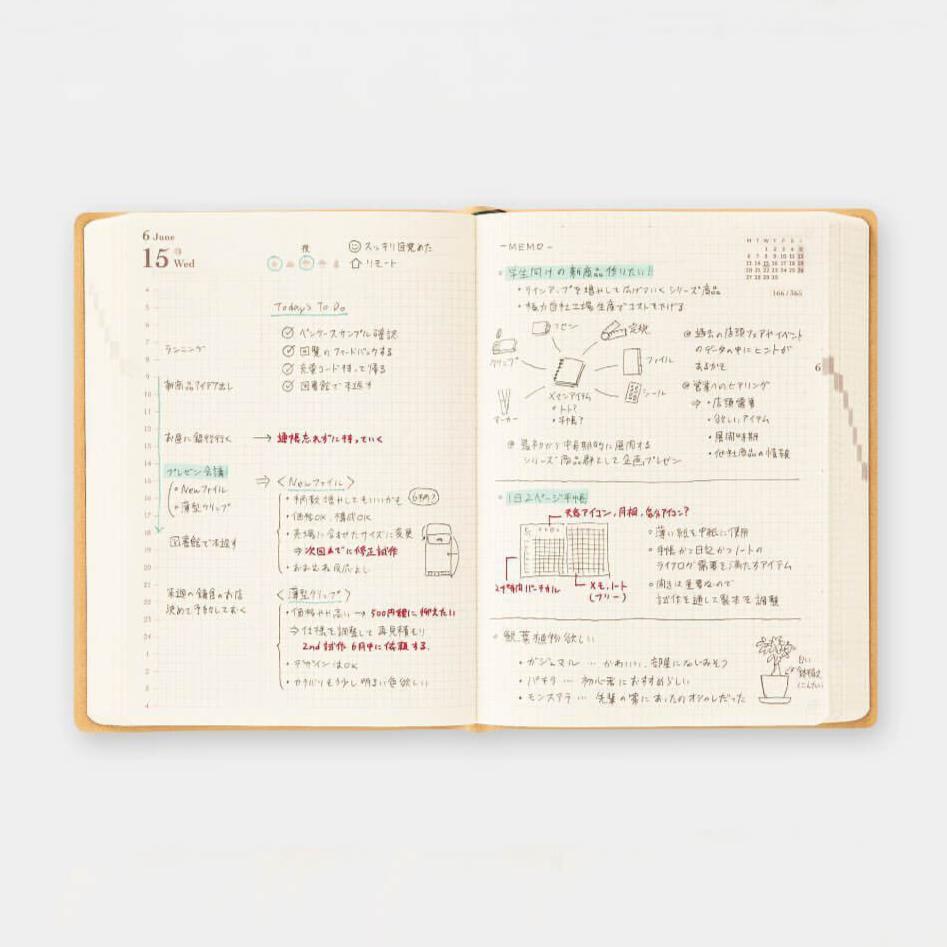 6 June
15 Wed
夜
スッキリ目覚めた
リモート
4
5
6
7
8
9
10
11
12
13
14
15
16
17
18
19
20
21
22
23
24
1
2
3
4
Today's To Do
ペンケースサンプル確認
回覧のフィードバックする
充電コード持って帰る
図書館で本返す
ランニング
新商品アイデア出し
お昼に銀行行く → 通帳忘れずに持っていく
プレゼン会議
・Newファイル
・薄型クリップ
図書館で本返す
来週の鎌倉のお店
決めて予約しておく
⇒ <Newファイル>
・柄数増やしてもいいかも 6柄?
・価格OK、構成OK
・売場に合わせたサイズに変更
⇒次回までに修正試作
・おおむね反応よし
<薄型クリップ>
・価格やや高い → 500円台に抑えたい
⇒仕様を調整して再見積もり
2nd試作 6月中に依頼する
・デザインはOK
・カラバリもう少し明るい色欲しい
-MEMO-
M T W T F S S
1 2 3 4 5
6 7 8 9 10 11 12
13 14 15 16 17 18 19
20 21 22 23 24 25 26
27 28 29 30
166/365
6
学生向けの新商品作りたい!!
・ラインアップを増やして広げていくシリーズ商品
・極力自社工場生産でコストを下げる
フセン
定規
クリップ
ファイル
シール
マーカー
メインアイテム
・ノート?
・手帳?
過去の店頭フェアやイベント
のデータの中にヒントが
あるかも
営業へのヒアリング
⇒・店頭需要
・欲しいアイテム
・展開時期
・他社商品の情報
最初から中長期的に展開する
シリーズ商品群として企画プレゼン
1日2ページ手帳
天気アイコン、月相、気分アイコン?
24時間バーチカル
メモ、ノート
(フリー)
薄い紙を中紙に使用
手帳かつ日記かつノートの
ライフログ需要を満たすアイテム
開きは重要なので
試作を通して製本を調整
観葉植物欲しい
・ガジュマル … かわいい、部屋になじみそう
・パキラ … 初心者におすすめらしい
・モンステラ … 先輩の家にあったのオシャレだった
白い
鉢植え
(こんたい)